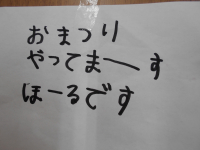 おまつり
やってまーす
ほーるです